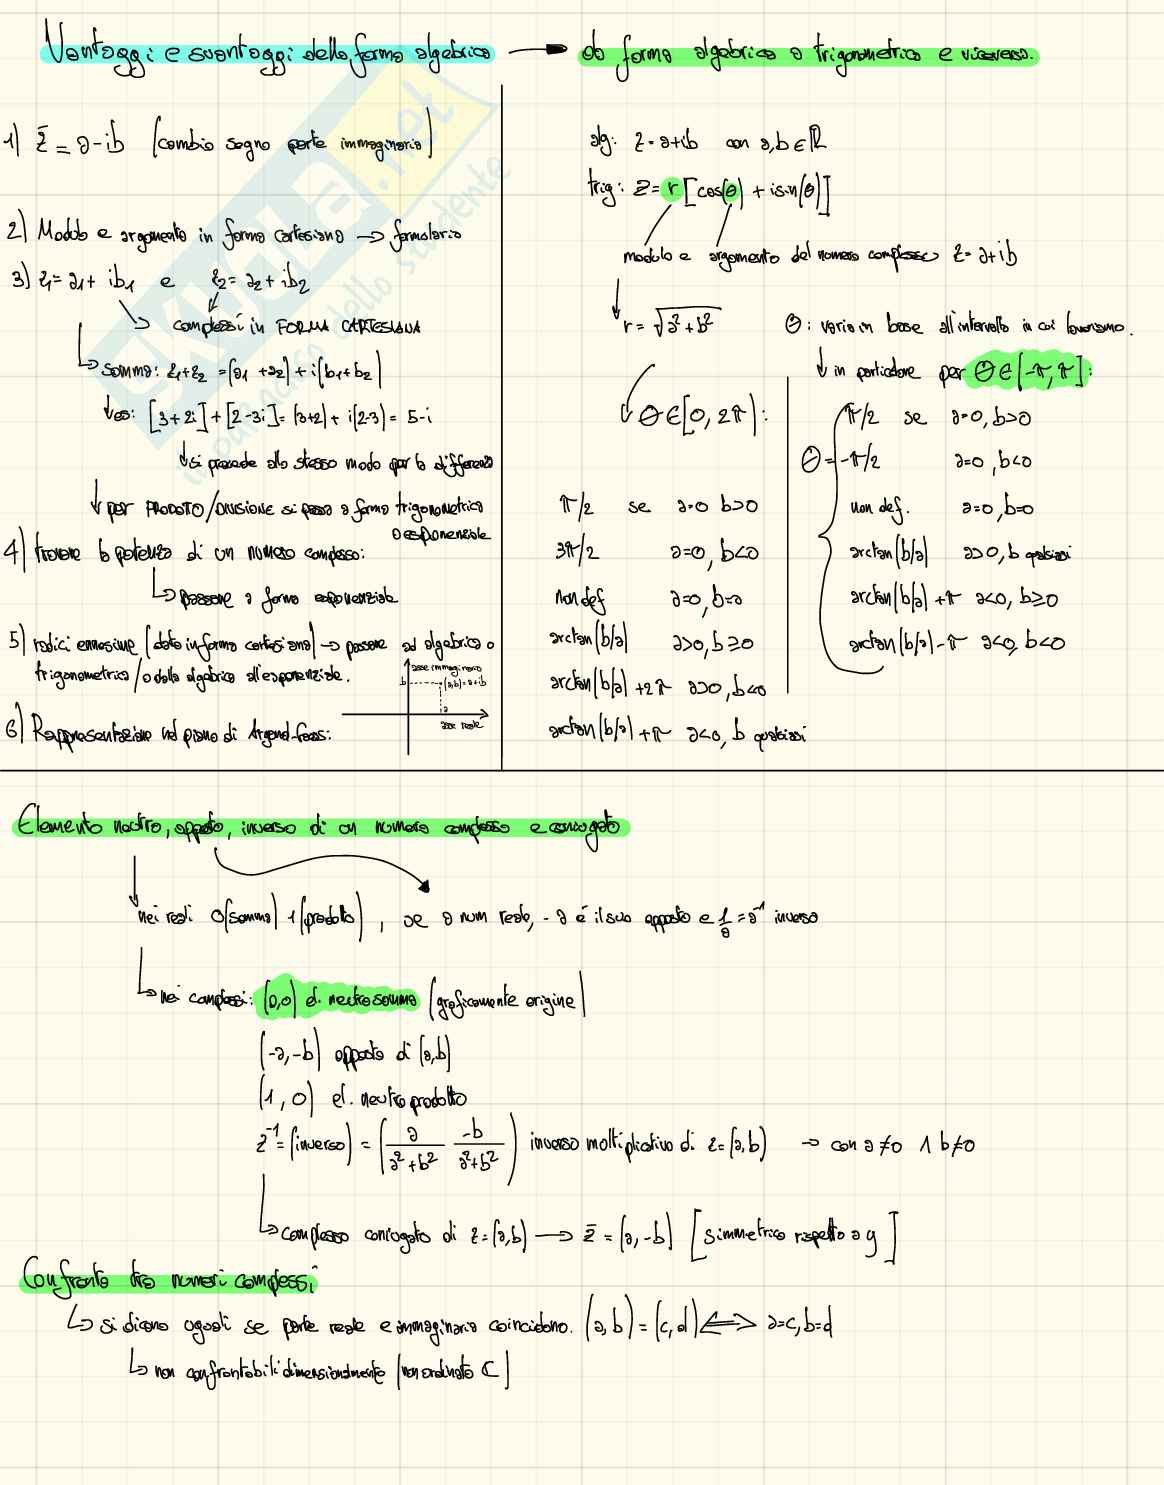 Vantaggi e svantaggi della forma algebrica → da forma algebrica a trigonometrica e viceversa.
1) z̄ = a-ib (cambio segno parte immaginaria)
2) Modulo e argomento in forma cartesiana → formulario
3) z1 = a1 + ib1 e z2 = a2 + ib2
complessi in FORMA CARTESIANA
somma: z1+z2 = (a1 + a2) + i(b1+b2)
es: [3+2i] + [2-3i] = (3+2) + i(2-3) = 5-i
si procede allo stesso modo per la differenza
per PRODOTTO/DIVISIONE si passa a forma trigonometrica
o esponenziale
4) trovare la potenza di un numero complesso:
passare a forma esponenziale
5) radici ennesime (data in forma cartesiana) → passare ad algebrica o
trigonometrica / o dalla algebrica all'esponenziale.
6) Rappresentazione nel piano di Argand-Gauss:
asse immaginario
b (a,b) = a+ib
a
asse reale
alg: z = a+ib con a,b ∈ ℝ
trig: z = r [cos(θ) + isin(θ)]
modulo e argomento del numero complesso z = a+ib
r = √a²+b²
θ ∈ [0, 2π):
π/2 se a=0 b>0
3π/2 a=0, b<0
non def a=0, b=0
arctan(b/a) a>0, b≥0
arctan(b/a) +2π a>0, b<0
arctan(b/a) +π a<0, b qualsiasi
θ: varia in base all'intervallo in cui lavoriamo.
in particolare per θ ∈ (-π, π]:
π/2 se a=0, b>0
θ = -π/2 a=0, b<0
non def. a=0, b=0
arctan(b/a) a>0, b qualsiasi
arctan(b/a) +π a<0, b≥0
arctan(b/a) -π a<0, b<0
Elemento neutro, opposto, inverso di un numero complesso e coniugato
nei reali 0(somma) 1(prodotto), se a num reale, -a è il suo opposto e 1/a = a⁻¹ inverso
nei complessi: (0,0) el. neutro somma (graficamente origine)
(-a,-b) opposto di (a,b)
(1, 0) el. neutro prodotto
z⁻¹ = (inverso) = (a/(a²+b²) -b/(a²+b²)) inverso moltiplicativo di z=(a,b) → con a≠0 ∧ b≠0
complesso coniugato di z=(a,b) → z̄ = (a,-b) [simmetrico rispetto a y]
Confronto tra numeri complessi
si dicono uguali se parte reale e immaginaria coincidono. (a,b) = (c,d) ⟺ a=c, b=d
non confrontabili dimensionalmente (non ordinato ℂ)
skuola.net
il paradiso dello studente